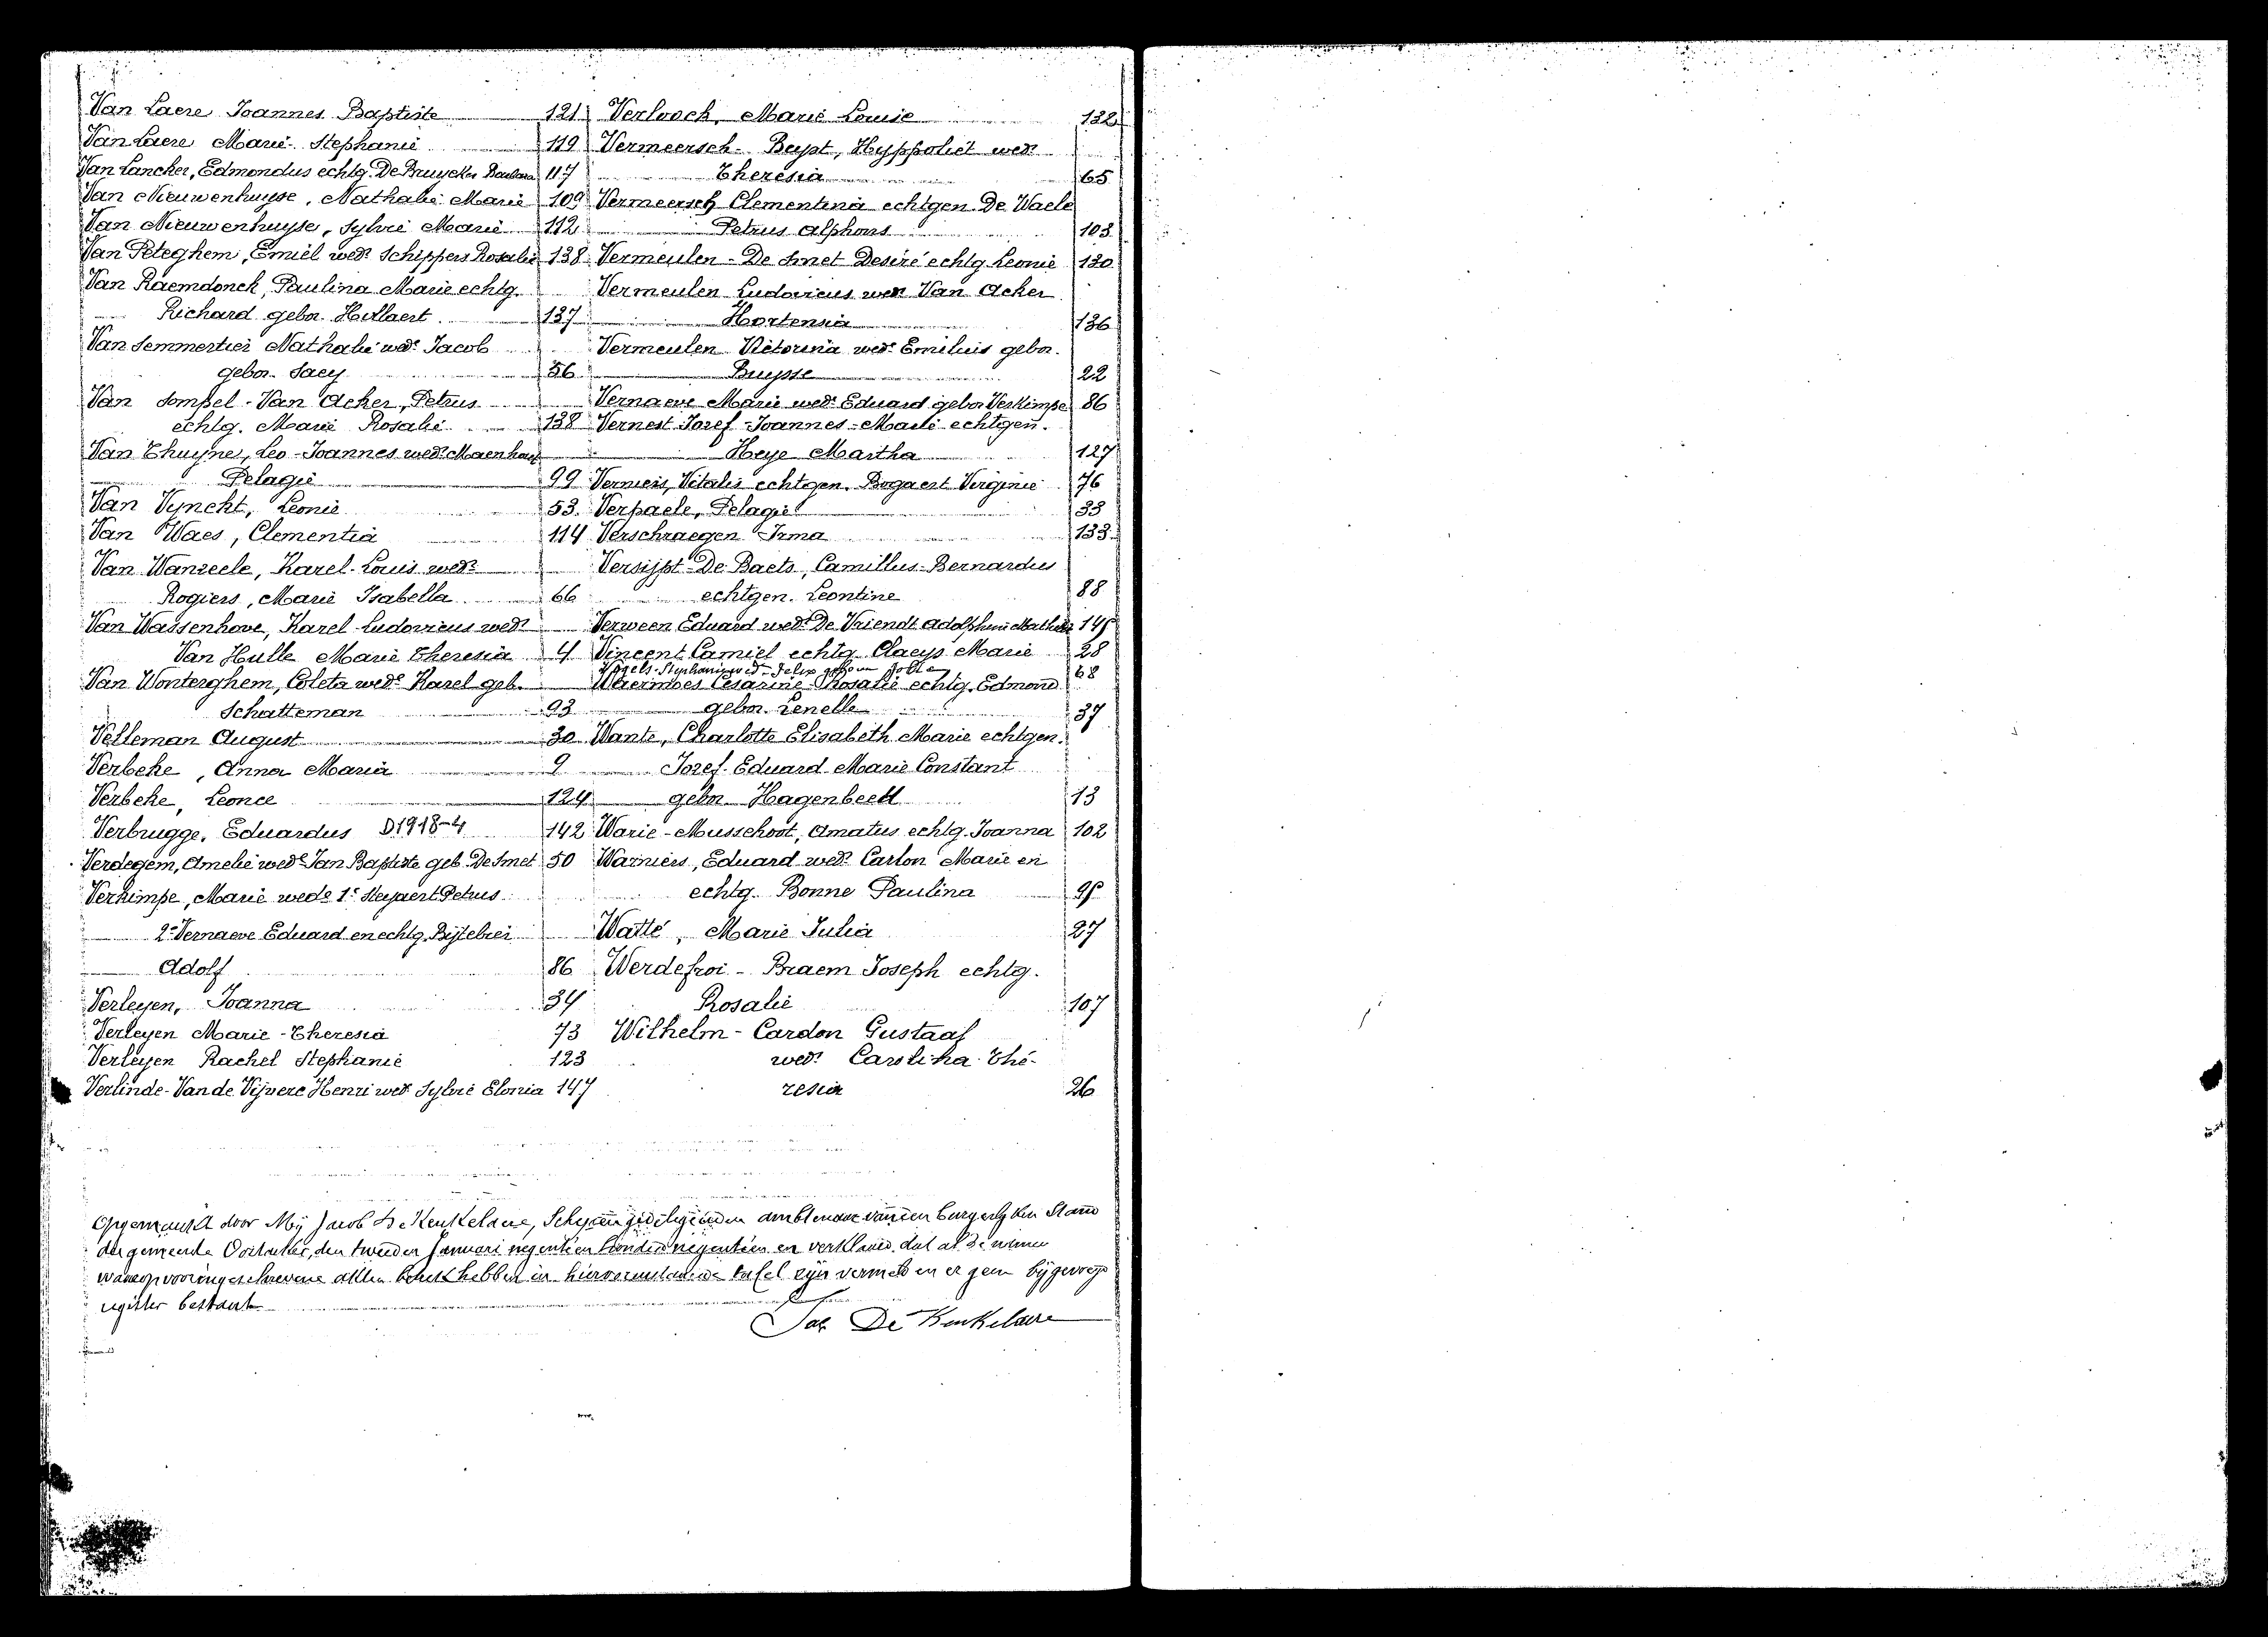 Van Laere Joannes Baptiste 121
Van Laere Marie Stephanie 119
Van Lancker, Edmondus echtg. De Bruycker Barbara 117
Van Nieuwenhuyse, Nathalie Marie 109
Van Nieuwenhuyse, Sylvie Marie 112
Van Peteghem, Emiel wedr Schippers Rosalie 138
Van Raemdonck, Paulina Marie echtg.
Richard gebor. Hillaert 137
Van Semmertier Nathalie wede Jacob
gebor. Saey 56
Van Sompel - Van Acker, Petrus
echtg. Marie Rosalie 138
Van Thuyne, Leo-Joannes wedr Maenhout
Pelagie 99
Van Vynckt, Leonie 53
Van Waes, Clementia 114
Van Wanzeele, Karel-Louis wedr
Rogiers, Marie Isabella 66
Van Wassenhove, Karel Ludovicus wedr
Van Hulle Marie Theresia 4
Van Wonterghem, Coleta wede Karel geb.
Schatteman 93
Velleman August 30
Verbeke, Anna Maria 9
Verbeke, Leonce 124
Verbrugge, Eduardus D1918-4 142
Verdegem, Amelie wede Jan Baptiste geb. De Smet 50
Verkimpe, Marie wede 1e Heyaert Petrus
2e Vernaeve Eduard en echtg. Bijtebier
Adolf 86
Verleyen, Joanna 34
Verleyen Marie-Theresia 73
Verleyen Rachel Stephanie 123
Verlinde-Van de Vijvere Henri wedr Sylvie Elonia 147
Verloock, Marie Louise 132
Vermeersch-Buyst, Hyppoliet wedr
Theresia 65
Vermeersch Clementina echtgen. De Waele
Petrus Alphons 103
Vermeulen-De Smet Desiré echtg. Leonie 130
Vermeulen Ludovicus wedr Van Acker
Hortensia 136
Vermeulen Victorina wede Emiluis gebor.
Buysse 22
Vernaeve Marie wede Eduard gebor Verkimpe 86
Vernest Jozef-Joannes-Marie echtgen.
Heye Martha 127
Verniers, Vitalis echtgen. Bogaert Virginie 76
Verpaele, Pelagie 33
Verschraegen Irma 133
Versijpt-De Baets, Camillus-Bernardus
echtgen. Leontine 88
Verween Eduard wedr De Vriendt Adolphine Mathilde 145
Vincent Camiel echtg. Claeys Marie 28
Vogels Stephanie wed Felix 68
Waermoes Cesarine-Rosalie echtg. Edmond
gebor. Lenelle 37
Wante, Charlotte Elisabeth Marie echtgen.
Jozef-Eduard-Marie Constant
gebor Hagenbeek 13
Warie-Musschoot, Amatus echtg. Joanna 102
Warniers, Eduard wedr Carlon Marie en
echtg. Bonne Paulina 95
Watté, Marie Julia 27
Werdefroi-Braem Joseph echtg.
Rosalie 107
Wilhelm-Cardon Gustaaf
wedr Carolina Thé-
resia 26
Opgemaakt door Mij Jacob De Keukelaere, Schepen gedelegeerden ambtenaar van den burgerlyken Stand
der gemeente Oostacker, den tweeden Januari negentien honderd negentien en verklaard dat al de namen
waarop vooringeschrevene akten betrek hebben in hierovenstaande tafel zijn vermeld en er geen bijgevoegd
register bestaat
Jac De Keukelaere